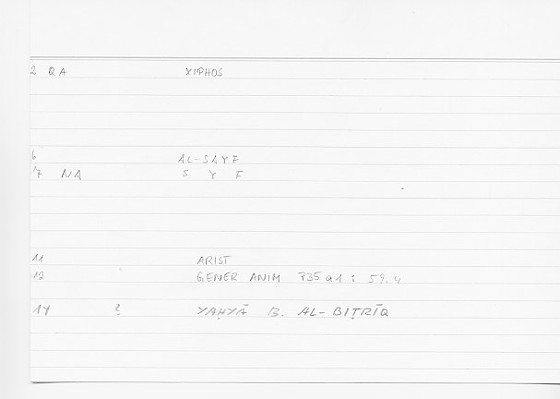 2 QA XIPHOS
6 AL-SAYF
7 NA S Y F
11 ARIST
12 GENER ANIM 735 a1 : 59.4
14 ? YAḤYĀ B. AL-BIṬRĪQ